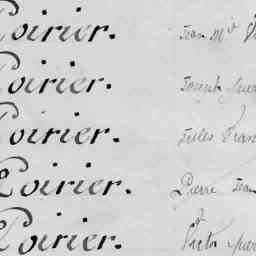 Poirier. Jean Mie
Poirier. Joseph
Poirier. Jules Fran
Poirier. Pierre Jean
Poirier. Victor